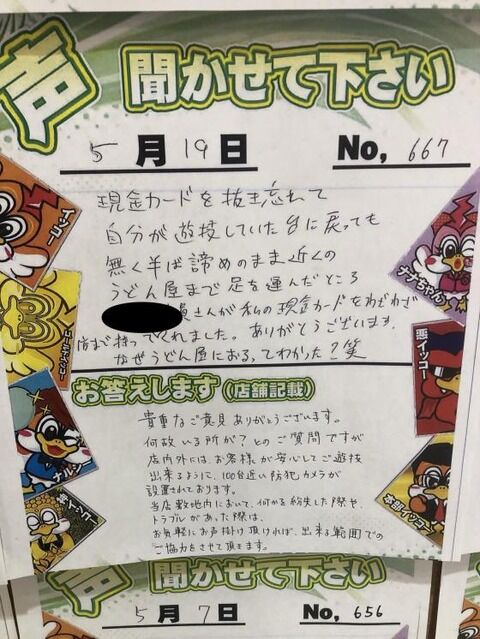 声 聞かせて下さい
5月19日 No, 667
現金カードを抜き忘れて
自分が遊技していた台に戻っても
無く半ば諦めのまま近くの
うどん屋まで足を運んだところ
員さんが私の現金カードをわざわざ
店まで持ってくれました。ありがとうございます。
なぜうどん屋におるってわかった?笑
お答えします(店舗記載)
貴重なご意見ありがとうございます。
何故いる所が?とのご質問ですが
店内外には、お客様が安心してご遊技
出来るように、100台近い防犯カメラが
設置されております。
当店敷地内において、何かを紛失した際や、
トラブルがあった際は、
お気軽にお声掛け頂ければ、出来る範囲での
ご協力をさせて頂きます。
イッコー
ゴールドイッコー
ナルー
神イッコー
ナナちゃん
悪イッコー
声 聞かせて下さい
5月7日 No, 656